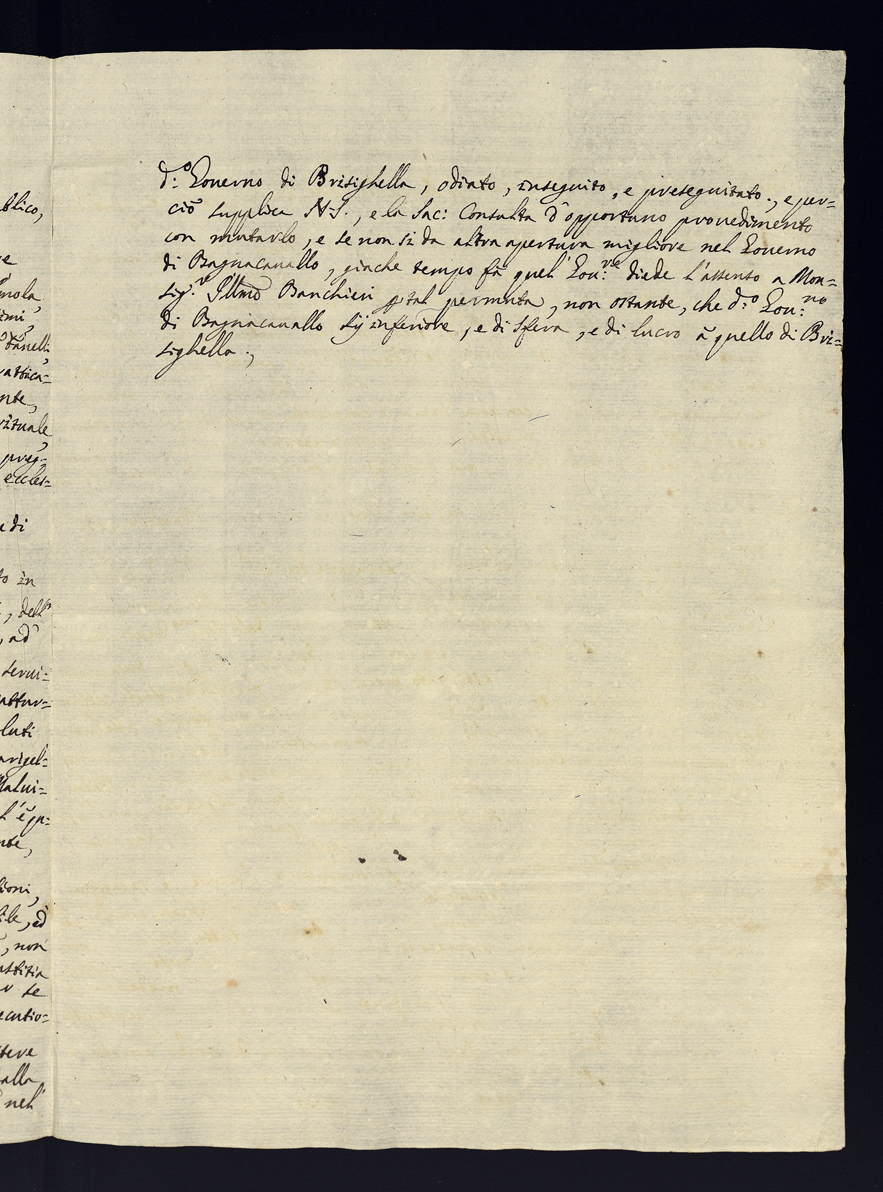 blico,
ve
nola,
imi,
tanelli,
nte,
rituale,
preg=
eccles=
e di
to in
, ad
servi=
luti
nte,
lioni,
, non
stitia
se
ecutio=
alla
nel
d:º Governo di Brisighella, odiato, inseguito, e preseguitato, e per=
ciò supplica N.S., e la Sac: Consulta d'opportuno provedimento
con mutarlo, e se non si da altra apertura migliore nel Governo
di Bagnacavallo, giache tempo fà quel Gov:re diede l'assenso a Mon=
sig.r Illmo Banchieri p tal permuta, non ostante, che d:º Gov:no
di Bagnacavallo sij inferiore, e di sfera, e di lucro à quello di Bri=
sighella.,